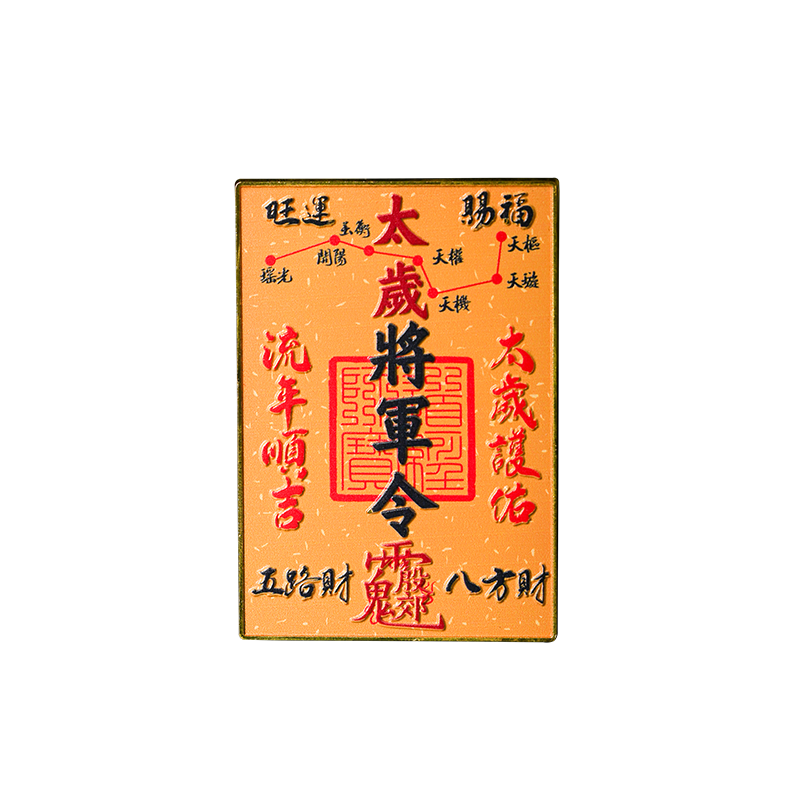 旺運
賜福
太歲將軍令
天樞
天璇
天機
天權
玉衡
開陽
瑤光
太歲護佑
流年順吉
五路財
八方財
殷郊